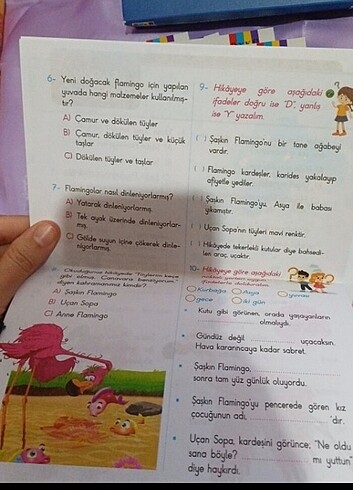 6- Yeni doğacak flamingo için yapılan
yuvada hangi malzemeler kullanılmış-
tır?
A) Çamur ve dökülen tüyler
B) Çamur, dökülen tüyler ve küçük
taşlar
C) Dökülen tüyler ve taşlar
7- Flamingolar nasıl dinleniyorlarmış?
A) Yatarak dinleniyorlarmış.
B) Tek ayak üzerinde dinleniyorlar-
mış.
C) Gölde suyun içine çökerek dinle-
niyorlarmış.
8- Okuduğunuz hikâyede "Tüylerim keçe
gibi olmuş. Canavara benziyorum."
diyen kahramanımız kimdir?
A) Şaşkın Flamingo
B) Uçan Sopa
C) Anne Flamingo
9- Hikâyeye göre aşağıdaki
ifadeler doğru ise "D", yanlış
ise "Y" yazalım.
( ) Şaşkın Flamingo'nu bir tane ağabeyi
vardır.
( ) Flamingo kardeşler, karides yakalayıp
afiyetle yediler.
( ) Şaşkın Flamingo'yu, Asya ile babası
yıkamıştır.
( ) Uçan Sopa'nın tüyleri mavi renktir.
( ) Hikâyede tekerlekli kutular diye bahsedi-
len araç, uçaktır.
10- Hikâyeye göre aşağıdaki
Kurbağa Asya yuvası
gece iki gün
• Kutu gibi görünen, orada yaşayanların
olmalıydı.
• Gündüz değil uçacaksın.
Hava kararıncaya kadar sabret.
• Şaşkın Flamingo,
sonra tam yüz günlük oluyordu.
• Şaşkın Flamingo'yu pencerede gören kız
çocuğunun adı, 'dır.
• Uçan Sopa, kardeşini görünce; "Ne oldu
sana böyle? mı yuttun"
diye haykırdı.